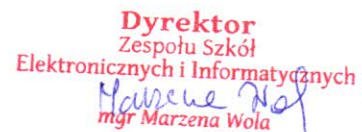 Dyrektor
Zespołu Szkół
Elektronicznych i Informatycznych
Marzena Wol
mgr Marzena Wola